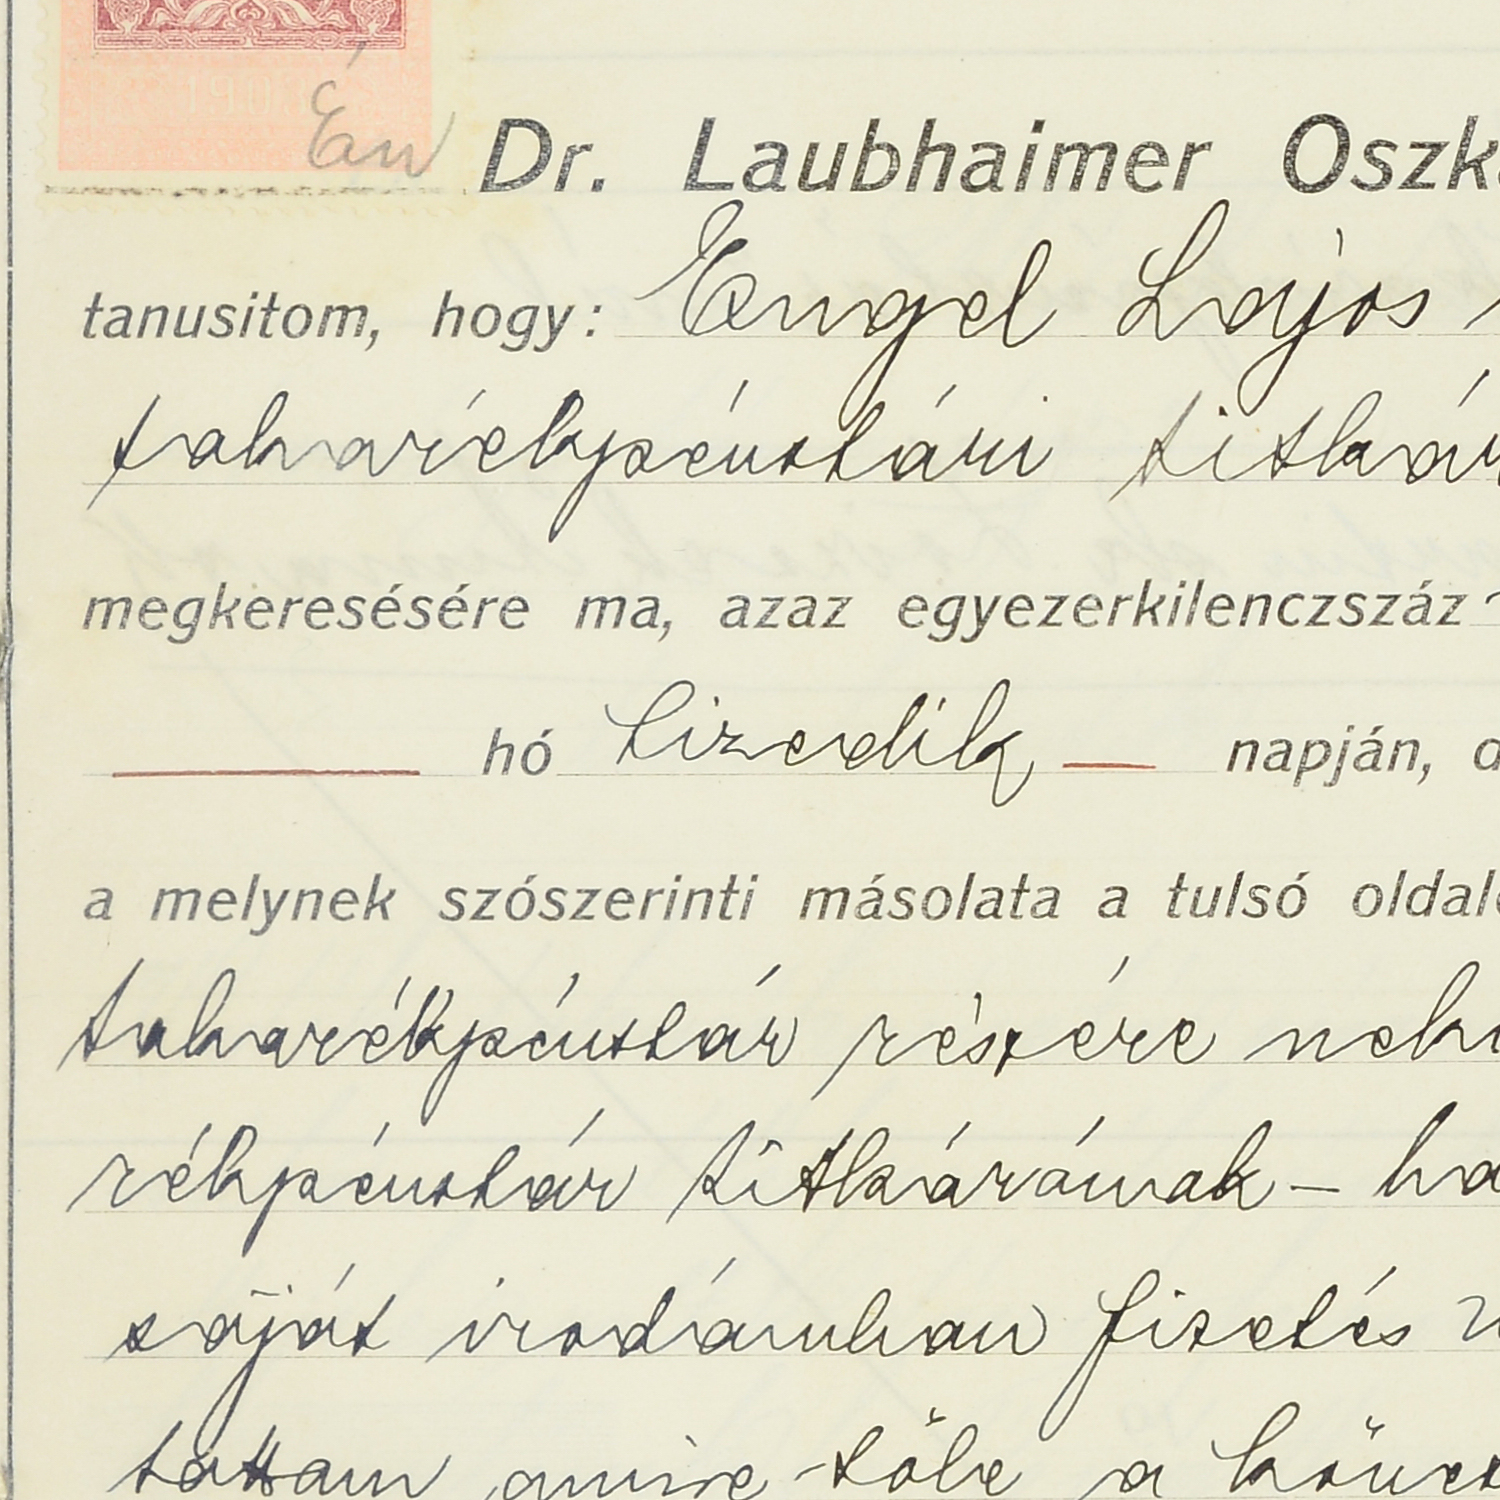 Én Dr. Laubhaimer Oszk
tanusitom, hogy: Engel Lajos
takarékpénztári titkár
megkeresésére ma, azaz egyezerkilenczszáz
hó tizedik napján,
a melynek szószerinti másolata a tulsó oldal
takarékpénztár részére
rékpénztár titkárának –
saját irodámban fizetés
tattam amire tőle a